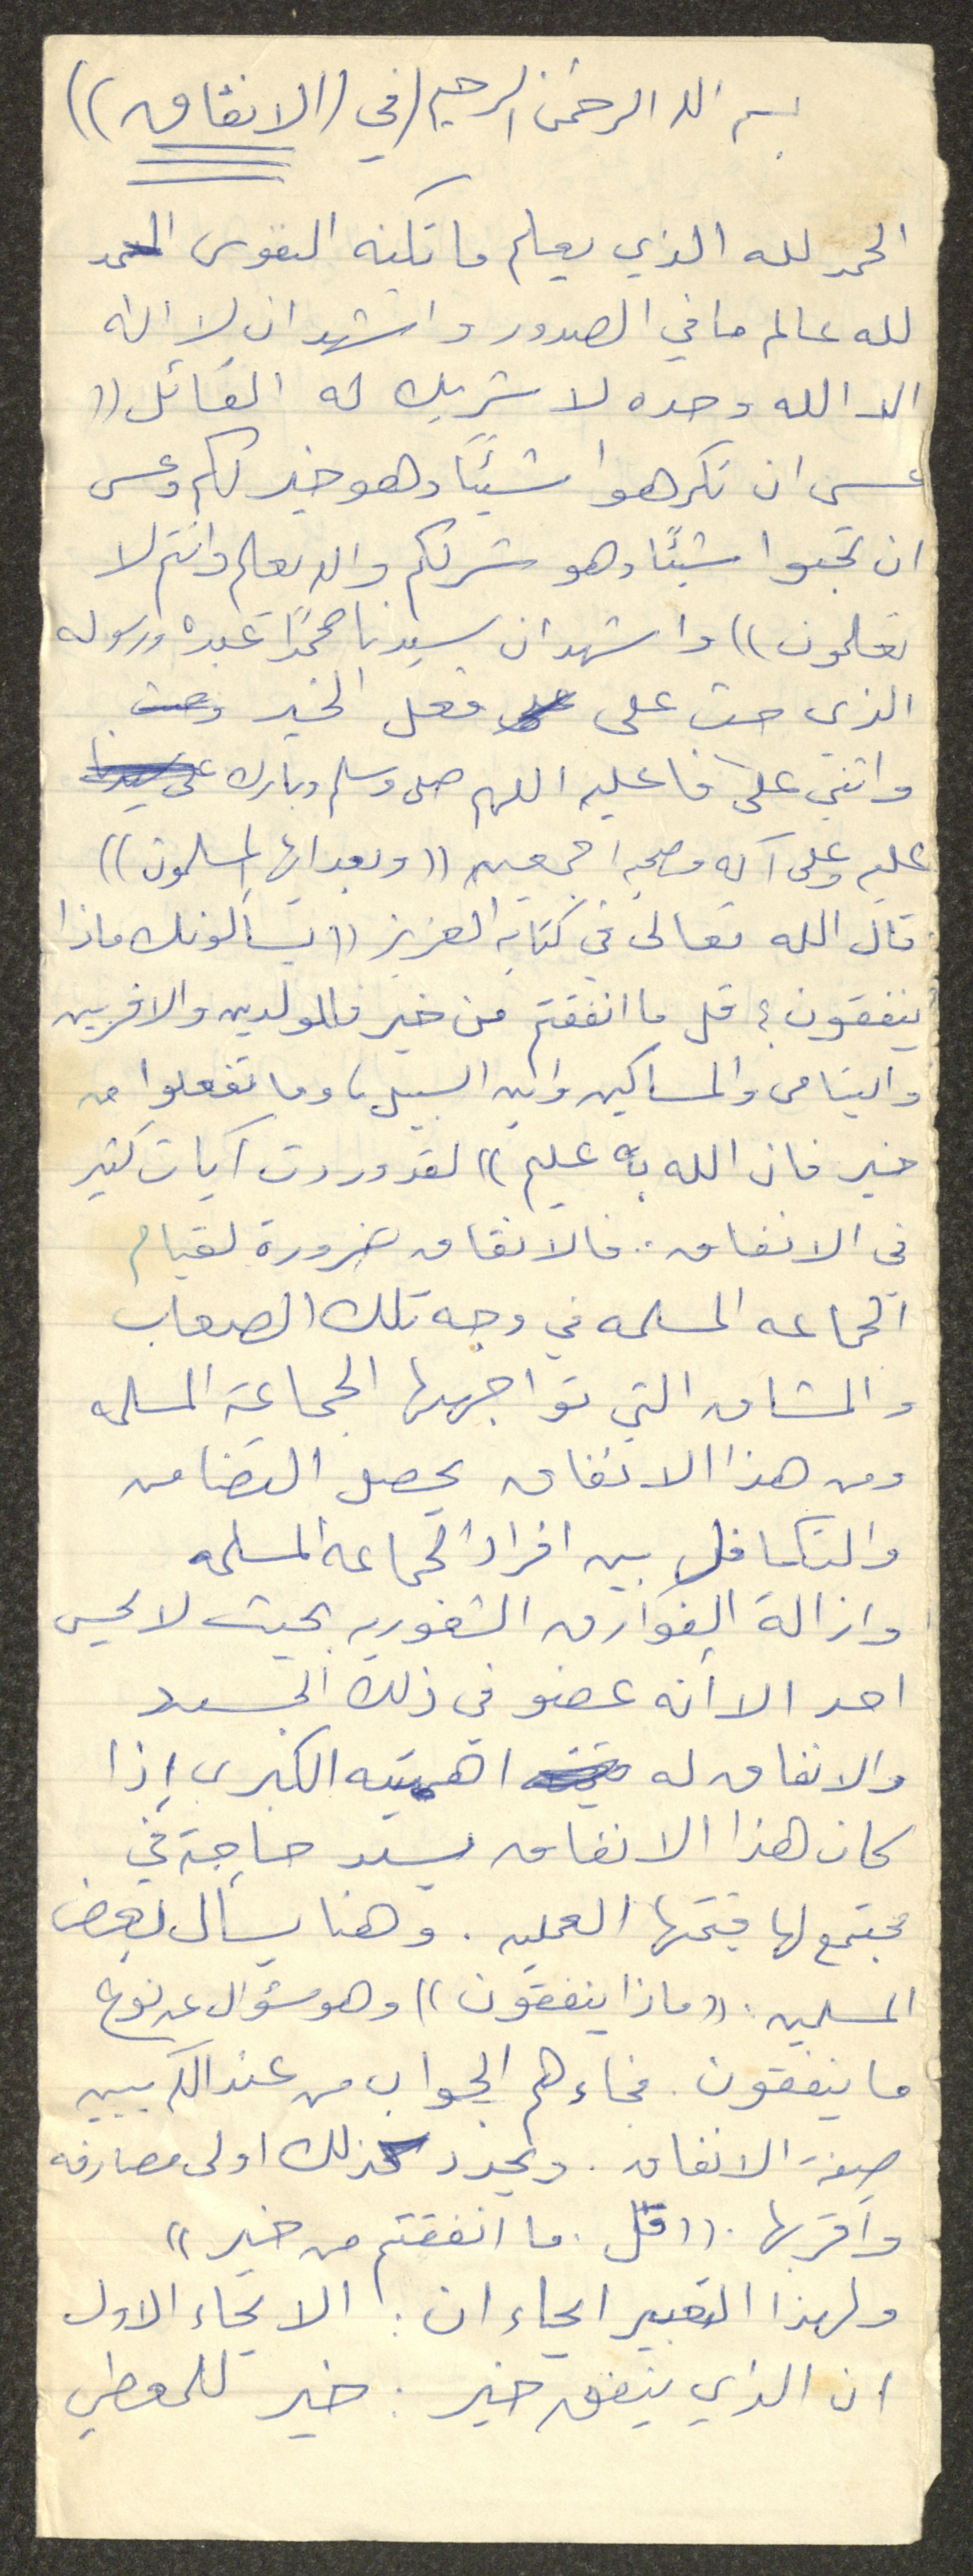 بسم الله الرحمن الرحيم (في (الانفاق))
الحمد لله الذي يعلم ما تكنه النفوس الحمد
لله عالم ما في الصدور واشهد ان لا اله
الا الله وحده لا شريك له القائل ((
عسى ان تكرهوا شيئًا وهو خير لكم وعسى
ان تحبوا شيئًا وهو شر لكم والله يعلم وانتم لا
تعلمون)) واشهد ان سيدنا محمدًا عبده ورسوله
الذي حث على على فعل الخير وحث
واثنى على فاعليه اللهم صلى وسلم وبارك على سيدنا
عليه وعلى آله وصحبه اجمعين ((وبعد ايها المسلمون))
قال الله تعالى في كتابه العزيز ((يسألونك ماذا
ينفقون؟ قل ما انفقتم من خير فللولدين والاقربين
واليتامى والمساكين وابن السبيل، وما تفعلوا من
خير فان الله به عليم)) لقد وردت آيات كثير
في الانفاق.. فالانفاق ضرورة لقيام
الجماعه المسلمه في وجه تلك الصعاب
والمشاق التي تواجهها الجماعة المسلمه
ومن هذا الانفاق يحصل التضامن
والتكافل بين افراد الجماعه المسلمه
وازالة الفوارق الشعوريه بحيث لا يحس
احد الا أنه عضو في ذلك الجسد
والانفاق له اهميته الكبرى إذا
كان هذا الانفاق يسد حاجة في
مجتمع لها قيمتها العمليه. وهنا يسأل بعض
المسلمين. ((ماذا ينفقون)) وهو سؤال عن نوع
ما ينفقون. فجاءهم الجواب من عند الله يبين
صفة الانفاق. ويحدد كذلك اولى مصارفه
وأقربها. ((قل. ما انفقتم من خير))
ولهذا التعبير ايحاء ان: الايحاء الاول
ان الذي ينفق خير: خير للمعطي